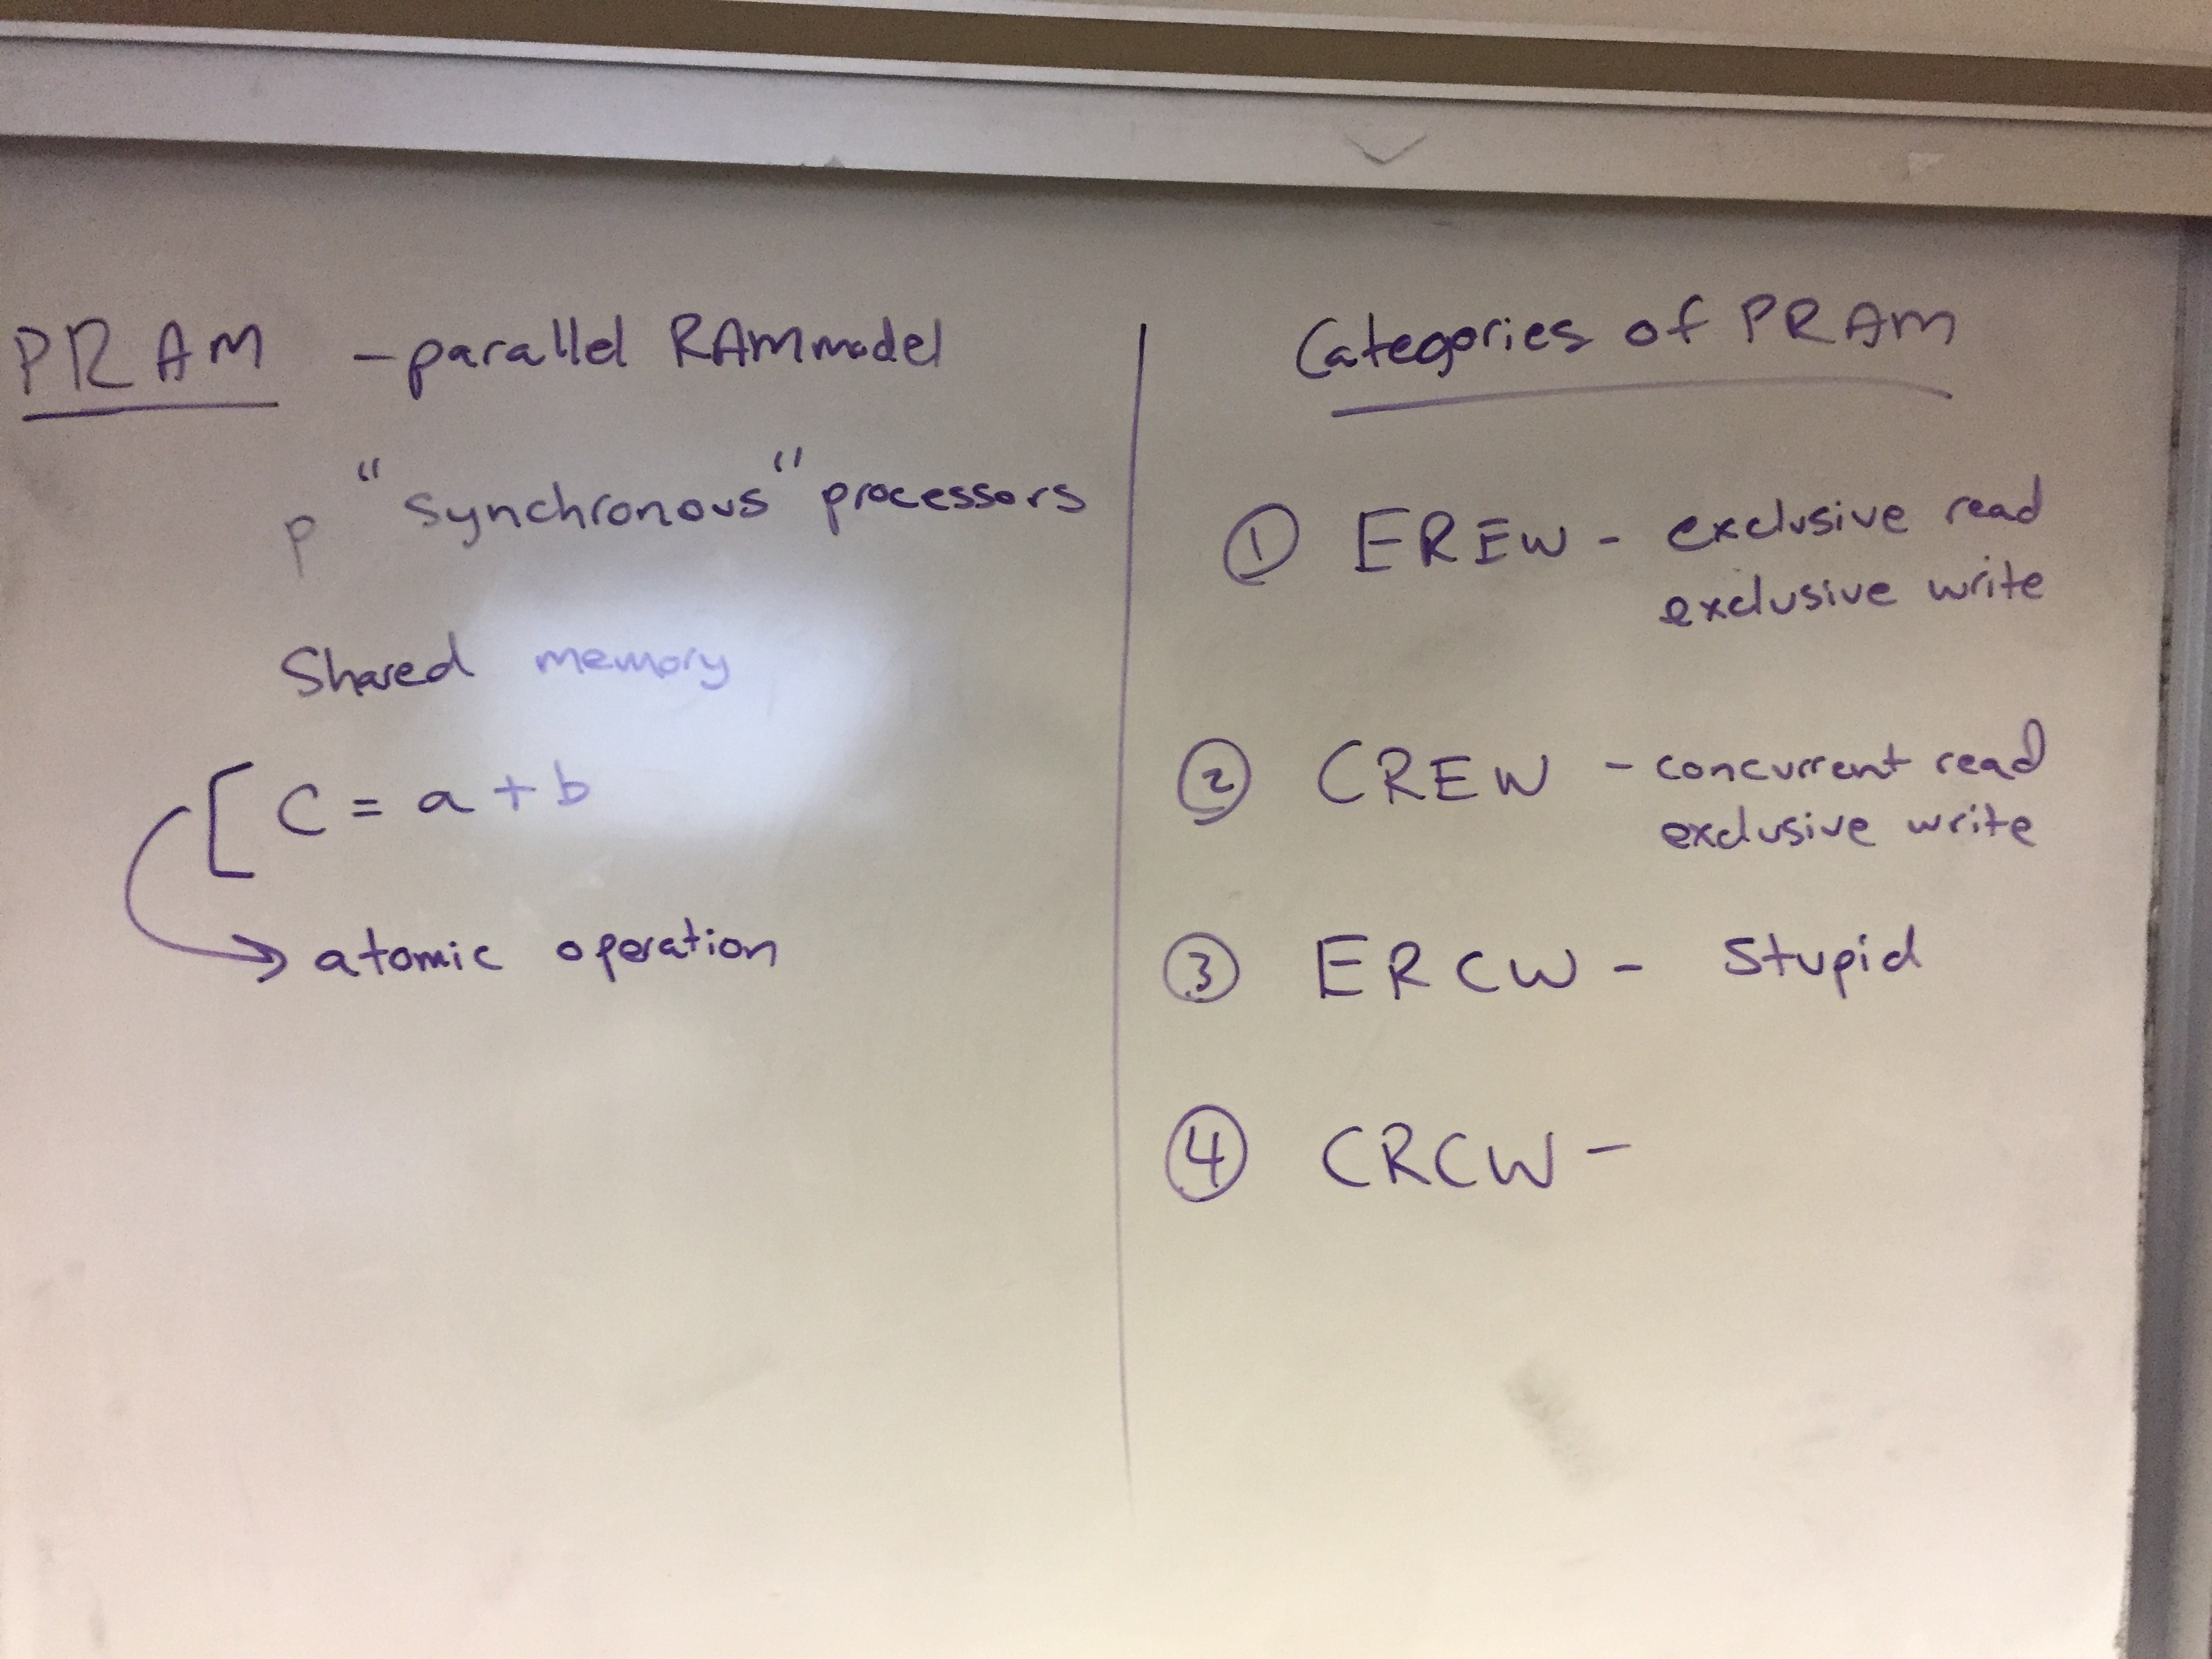 PRAM - parallel RAM model
p "synchronous" processors
Shared memory
[ C = a + b
→ atomic operation
Categories of PRAM
① EREW - exclusive read
exclusive write
② CREW - concurrent read
exclusive write
③ ERCW - Stupid
④ CRCW -